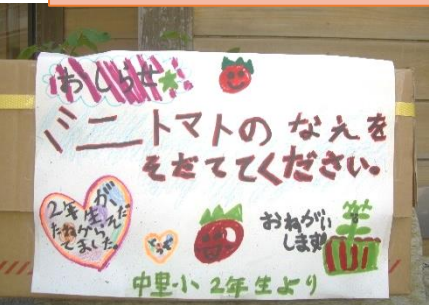 おしらせ
ミニトマトの なえを
そだててください。
2年生が
たねからそだ
てました。
おねがい
します
中里小 2年生より